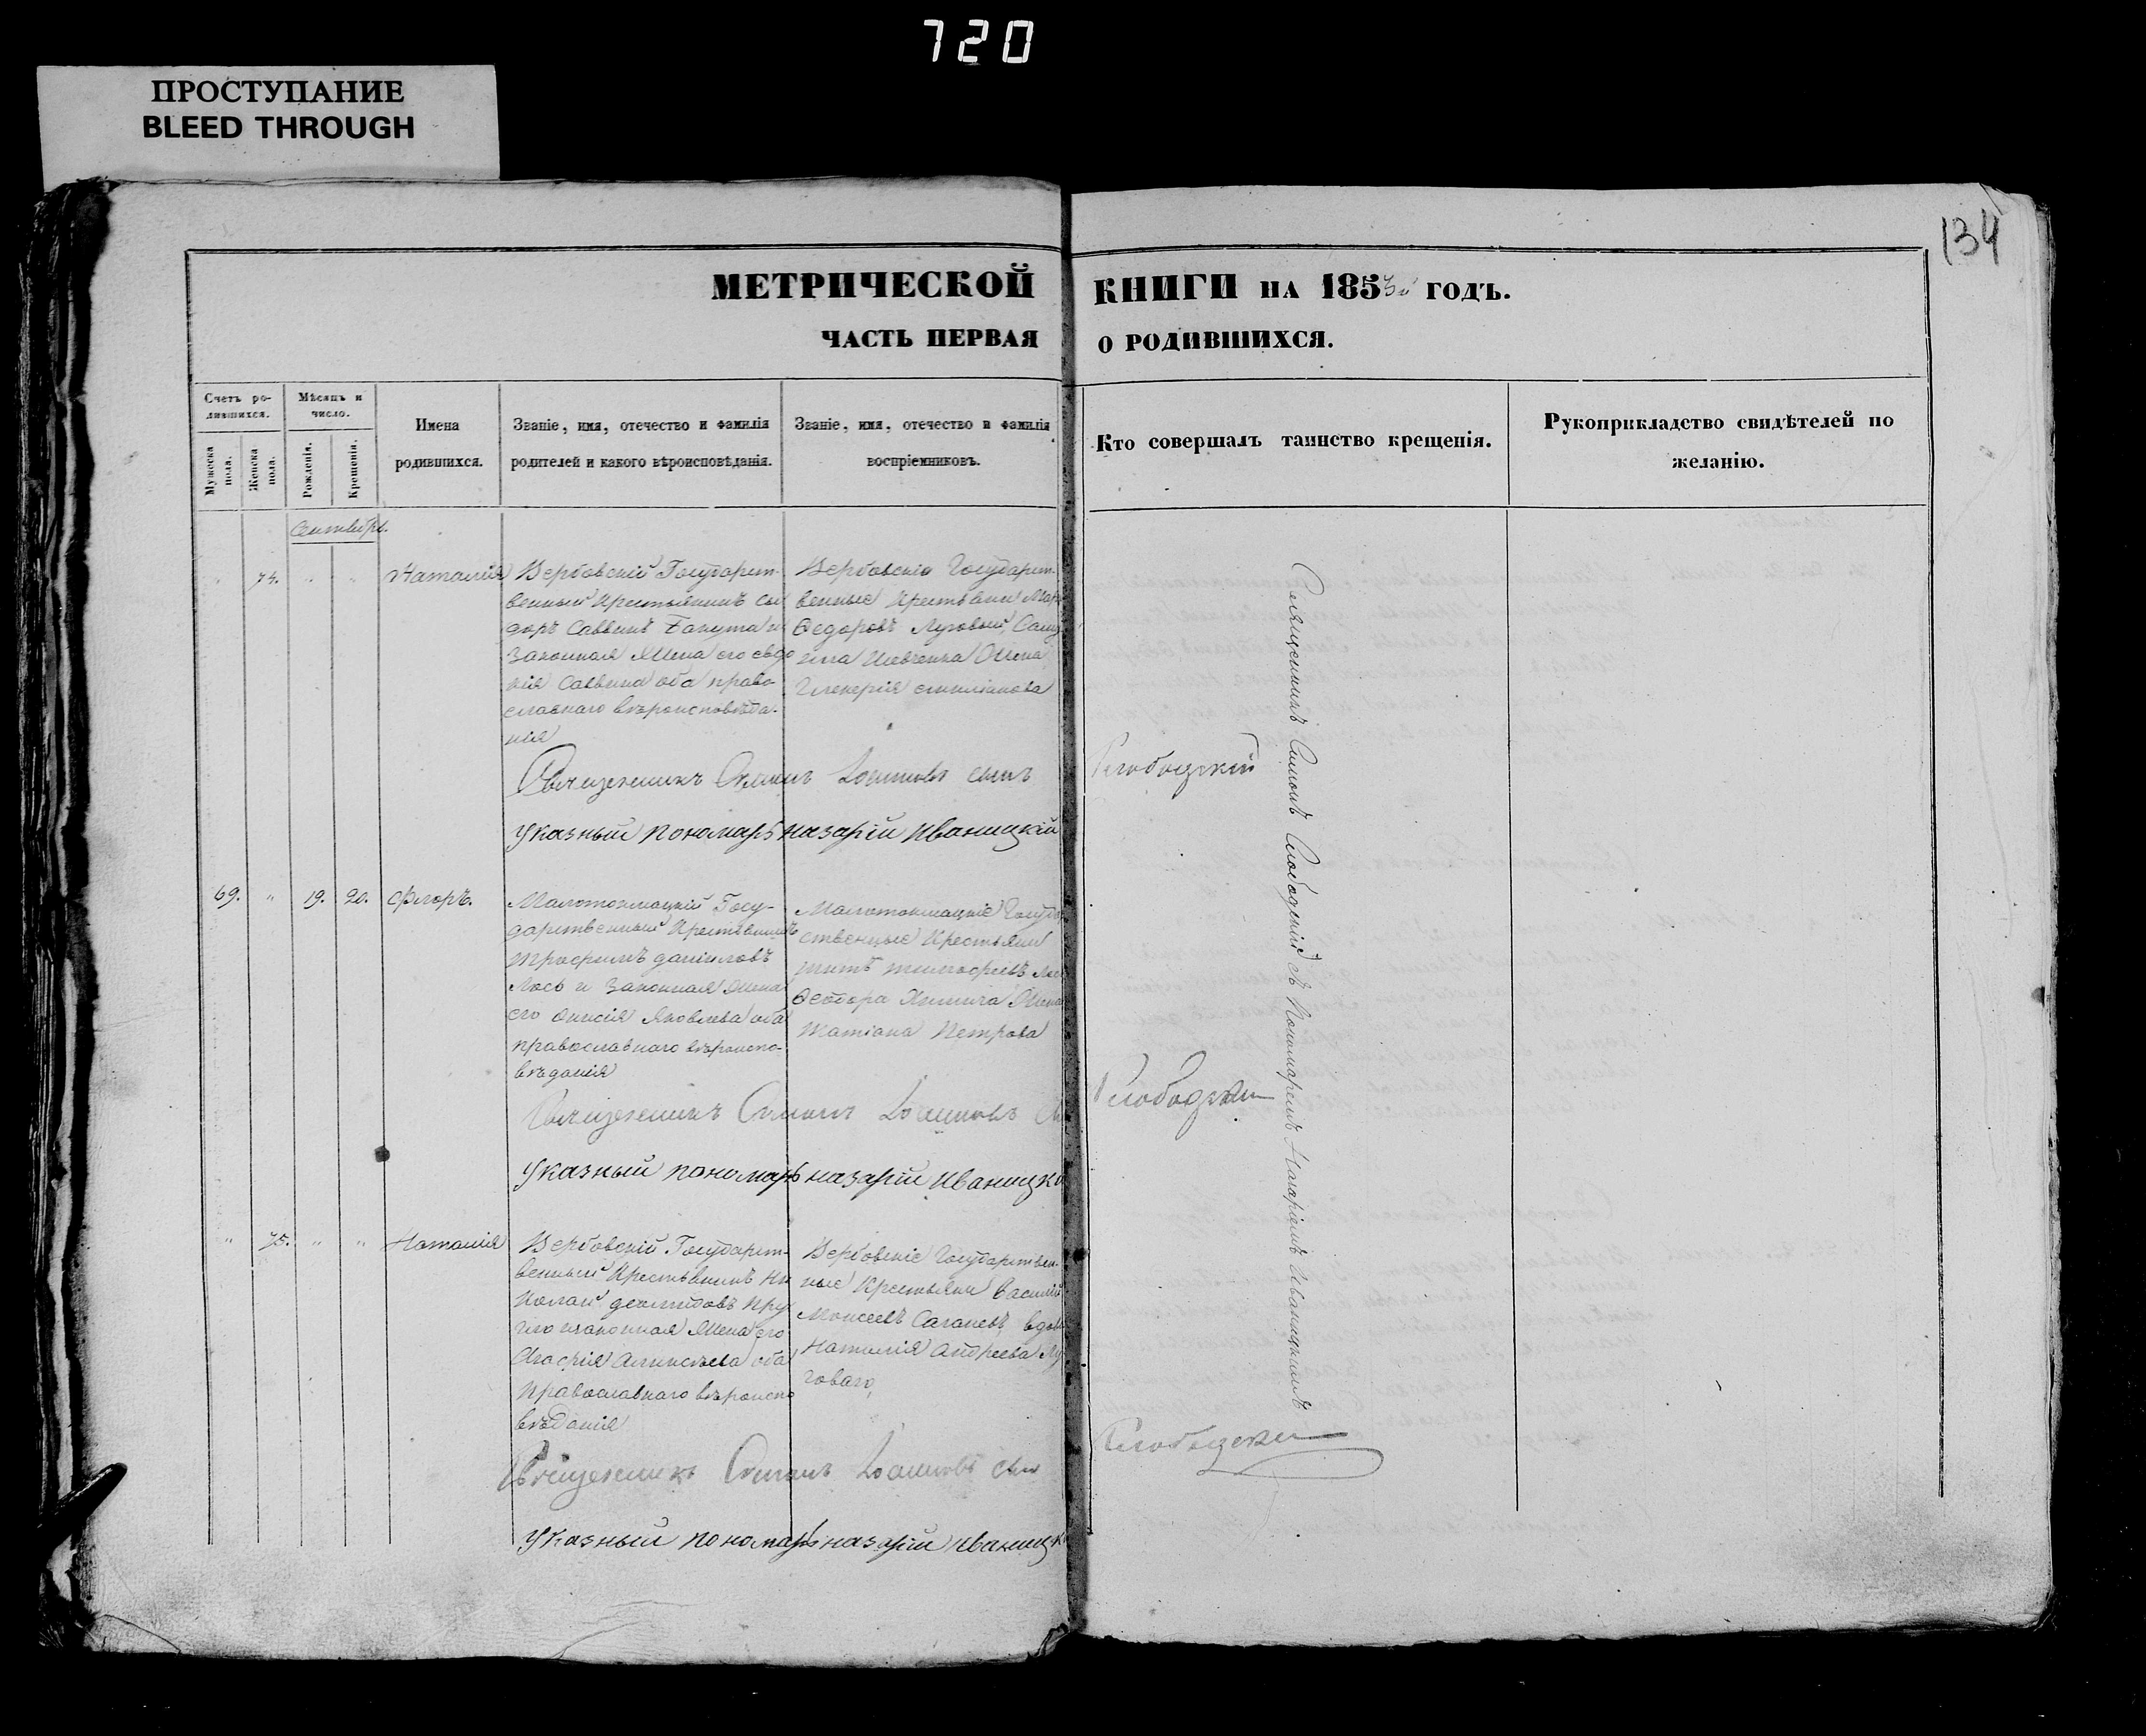 720
ПРОСТУПАНИЕ
BLEED THROUGH
134
МЕТРИЧЕСКОЙ КНИГИ НА 1853 ГОДЪ.
ЧАСТЬ ПЕРВАЯ О РОДИВШИХСЯ.
Счетъ родившихся.
Мужеска пола.
Женска пола.
Мѣсяцъ и число.
Рожденія.
Крещенія.
Имена родившихся.
Званіе, имя, отечество и фамилія
родителей и какого вѣроисповѣданія.
Званіе, имя, отечество и фамилія
воспріемниковъ.
Кто совершалъ таинство крещенія.
Рукоприкладство свидѣтелей по
желанію.
Сентябрь.
" 74. " " Наталія
Вербовскій Государст-
венный Крестьянинъ
Саввинъ
законная жена его
Саввина оба право-
славнаго вѣроисповѣда-
нія
Вербовскіе Государст-
венные Крестьяне
Федоровъ Луговый,
Шевченка Жена
Гликерія
Священникъ Симонъ Іоанновъ сынъ Слободскій
Указный пономарь Назарій Иваницкій
69. " 19. 20. Флоръ.
Малотокмацкій Госу-
дарственный Крестьянинъ
Трофимъ Даніиловъ
Лось и Законная Жена
его Анисія Яковлева оба
православнаго вѣроиспо-
вѣданія
Малотокмацкіе
ственные Крестьяне
Титъ Тимофеевъ
Феодора Жена
Татіана Петрова
Священникъ Симонъ Іоанновъ Слободскій
Указный пономарь Назарій
" 75. " " Наталія
Вербовскій Государст-
венный Крестьянинъ Ни
колай
законная Жена его
Алексѣева оба
Православнаго вѣроиспо
вѣданія
Вербовскіе Государствен-
ные Крестьяне Василій
Моисеевъ вдова
Наталія Андреева Лу
говаго
Священникъ Симонъ Іоанновъ сынъ Слободскій
Указный пономарь Назарій
Священникъ Симонъ Слободскій съ Пономаремъ Назаріемъ Иваницкимъ